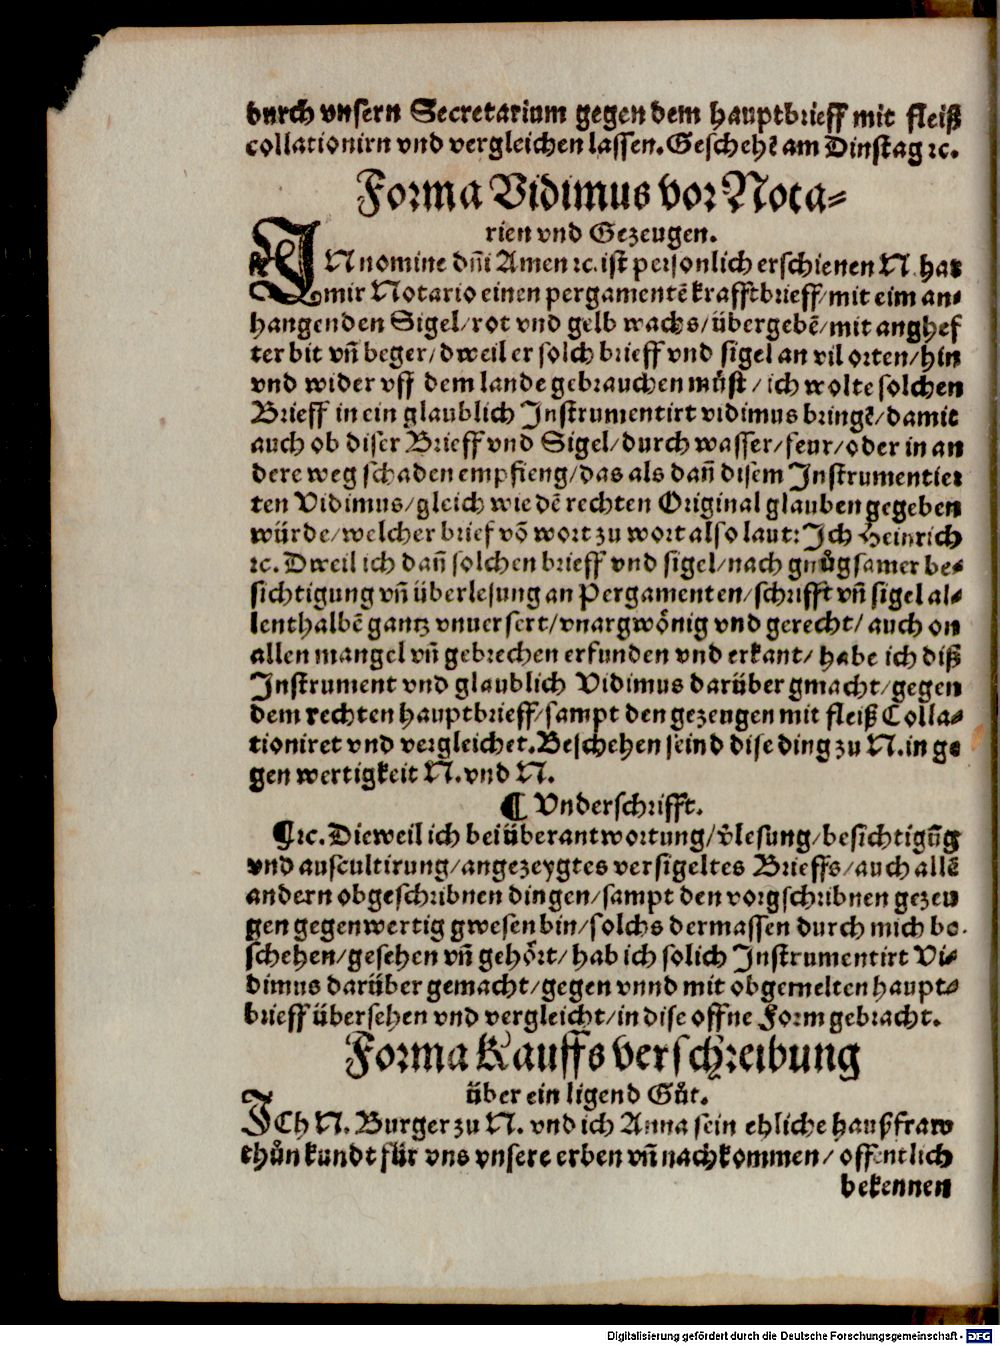 durch vnsern Secretarium gegen dem hauptbrieff mit fleiß
collationirn vnd vergleichen lassen. Geschehẽ am Dinstag ꝛc.
Forma Vidimus vor Nota⸗
rien vnd Gezeugen.
IN nomine dñi Amen ꝛc. ist personlich erschienen N. hat
mir Notario einen pergamentẽ krafftbrieff/ mit eim an⸗
hangenden Sigel/ rot vnd gelb wachs/ übergebẽ/ mit anghef
ter bit vñ beger/ dweil er solch brieff vnd sigel an vil orten/ hin
vnd wider vff dem lande gebrauchen müst/ ich wolte solchen
Brieff in ein glaublich Instrumentirt vidimus bringẽ/ damit
auch ob diser Brieff vnd Sigel/ durch wasser/ feur/ oder in an
dere weg schaden empfieng/ das als dañ disem Instrumentier
ten Vidimus/ gleich wie dẽ rechten Original glauben gegeben
würde/ welcher brief võ wort zu wort also laut: Ich Heinrich
ꝛc. Dweil ich dañ solchen brieff vnd sigel/ nach gnůgsamer be⸗
sichtigung vñ überlesung an Pergamenten/ schrifft vñ sigel al⸗
lenthalbẽ gantz vnuersert/ vnargwönig vnd gerecht/ auch on
allen mangel vñ gebrechen erfunden vnd erkant/ habe ich diß
Instrument vnd glaublich Vidimus darüber gmacht/ gegen
dem rechten hauptbrieff/ sampt den gezeugen mit fleiß Colla⸗
tioniret vnd vergleichet. Beschehen seind dise ding zu N. in ge
gen wertigkeit N. vnd N.
¶ Vnderschrifft.
¶ ꝛc. Dieweil ich bei überantwortung/ v̂lesung/ besichtigũg
vnd auscultirung/ angezeygtes versigeltes Brieffs/ auch allẽ
andern obgeschribnen dingen/ sampt den vorgschribnen gezeu
gen gegenwertig gwesen bin/ solchs dermassen durch mich be⸗
schehen/ gesehen vñ gehört/ hab ich solich Instrumentirt Vi⸗
dimus darüber gemacht/ gegen vnnd mit obgemelten haupt⸗
brieff übersehen vnd vergleicht/ in dise offne Form gebracht.
Forma Kauffs verschreibung
über ein ligend Gůt.
ICh N. Burger zu N. vnd ich Anna sein ehliche haußfraw
thůn kundt für vns vnsere erben vñ nachkommen/ offentlich
bekennen
Digitalisierung gefördert durch die Deutsche Forschungsgemeinschaft - DFG